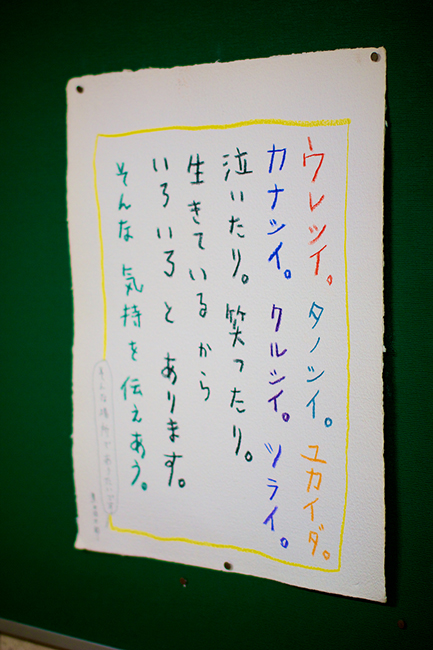 ウレシイ。タノシイ。ユカイダ。
カナシイ。クルシイ。ツライ。
泣いたり。笑ったり。
生きているから
いろいろと あります。
そんな 気持を伝えあう。
そんな場所でありたいです